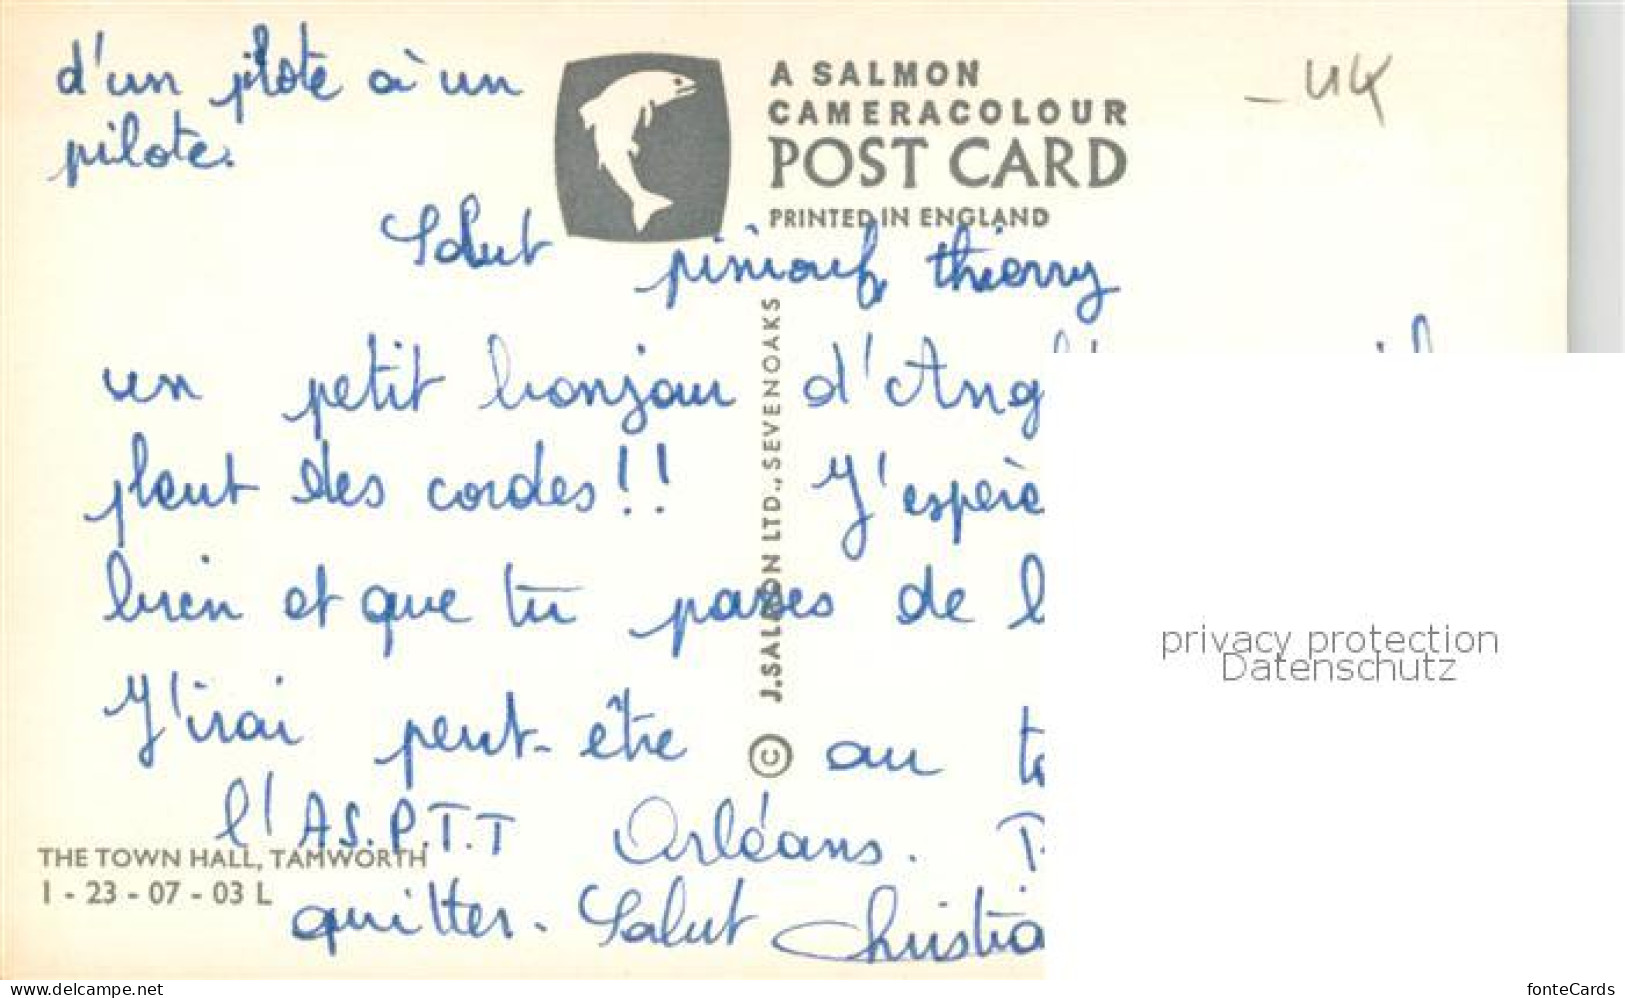 d'un pilote à un
pilote.
A SALMON
CAMERACOLOUR
POST CARD
PRINTED IN ENGLAND
- UK
Salut piniouf thierry
un petit bonjour d'Ang
pleut des cordes!! J'espère
bien et que tu passes de
J'irai peut-être au
l'A.S.P.T.T Orléans.
quitter. Salut Christia
© J.SALMON LTD., SEVENOAKS
THE TOWN HALL, TAMWORTH
1 - 23 - 07 - 03 L
privacy protection
Datenschutz
www.delcampe.net
fonteCards